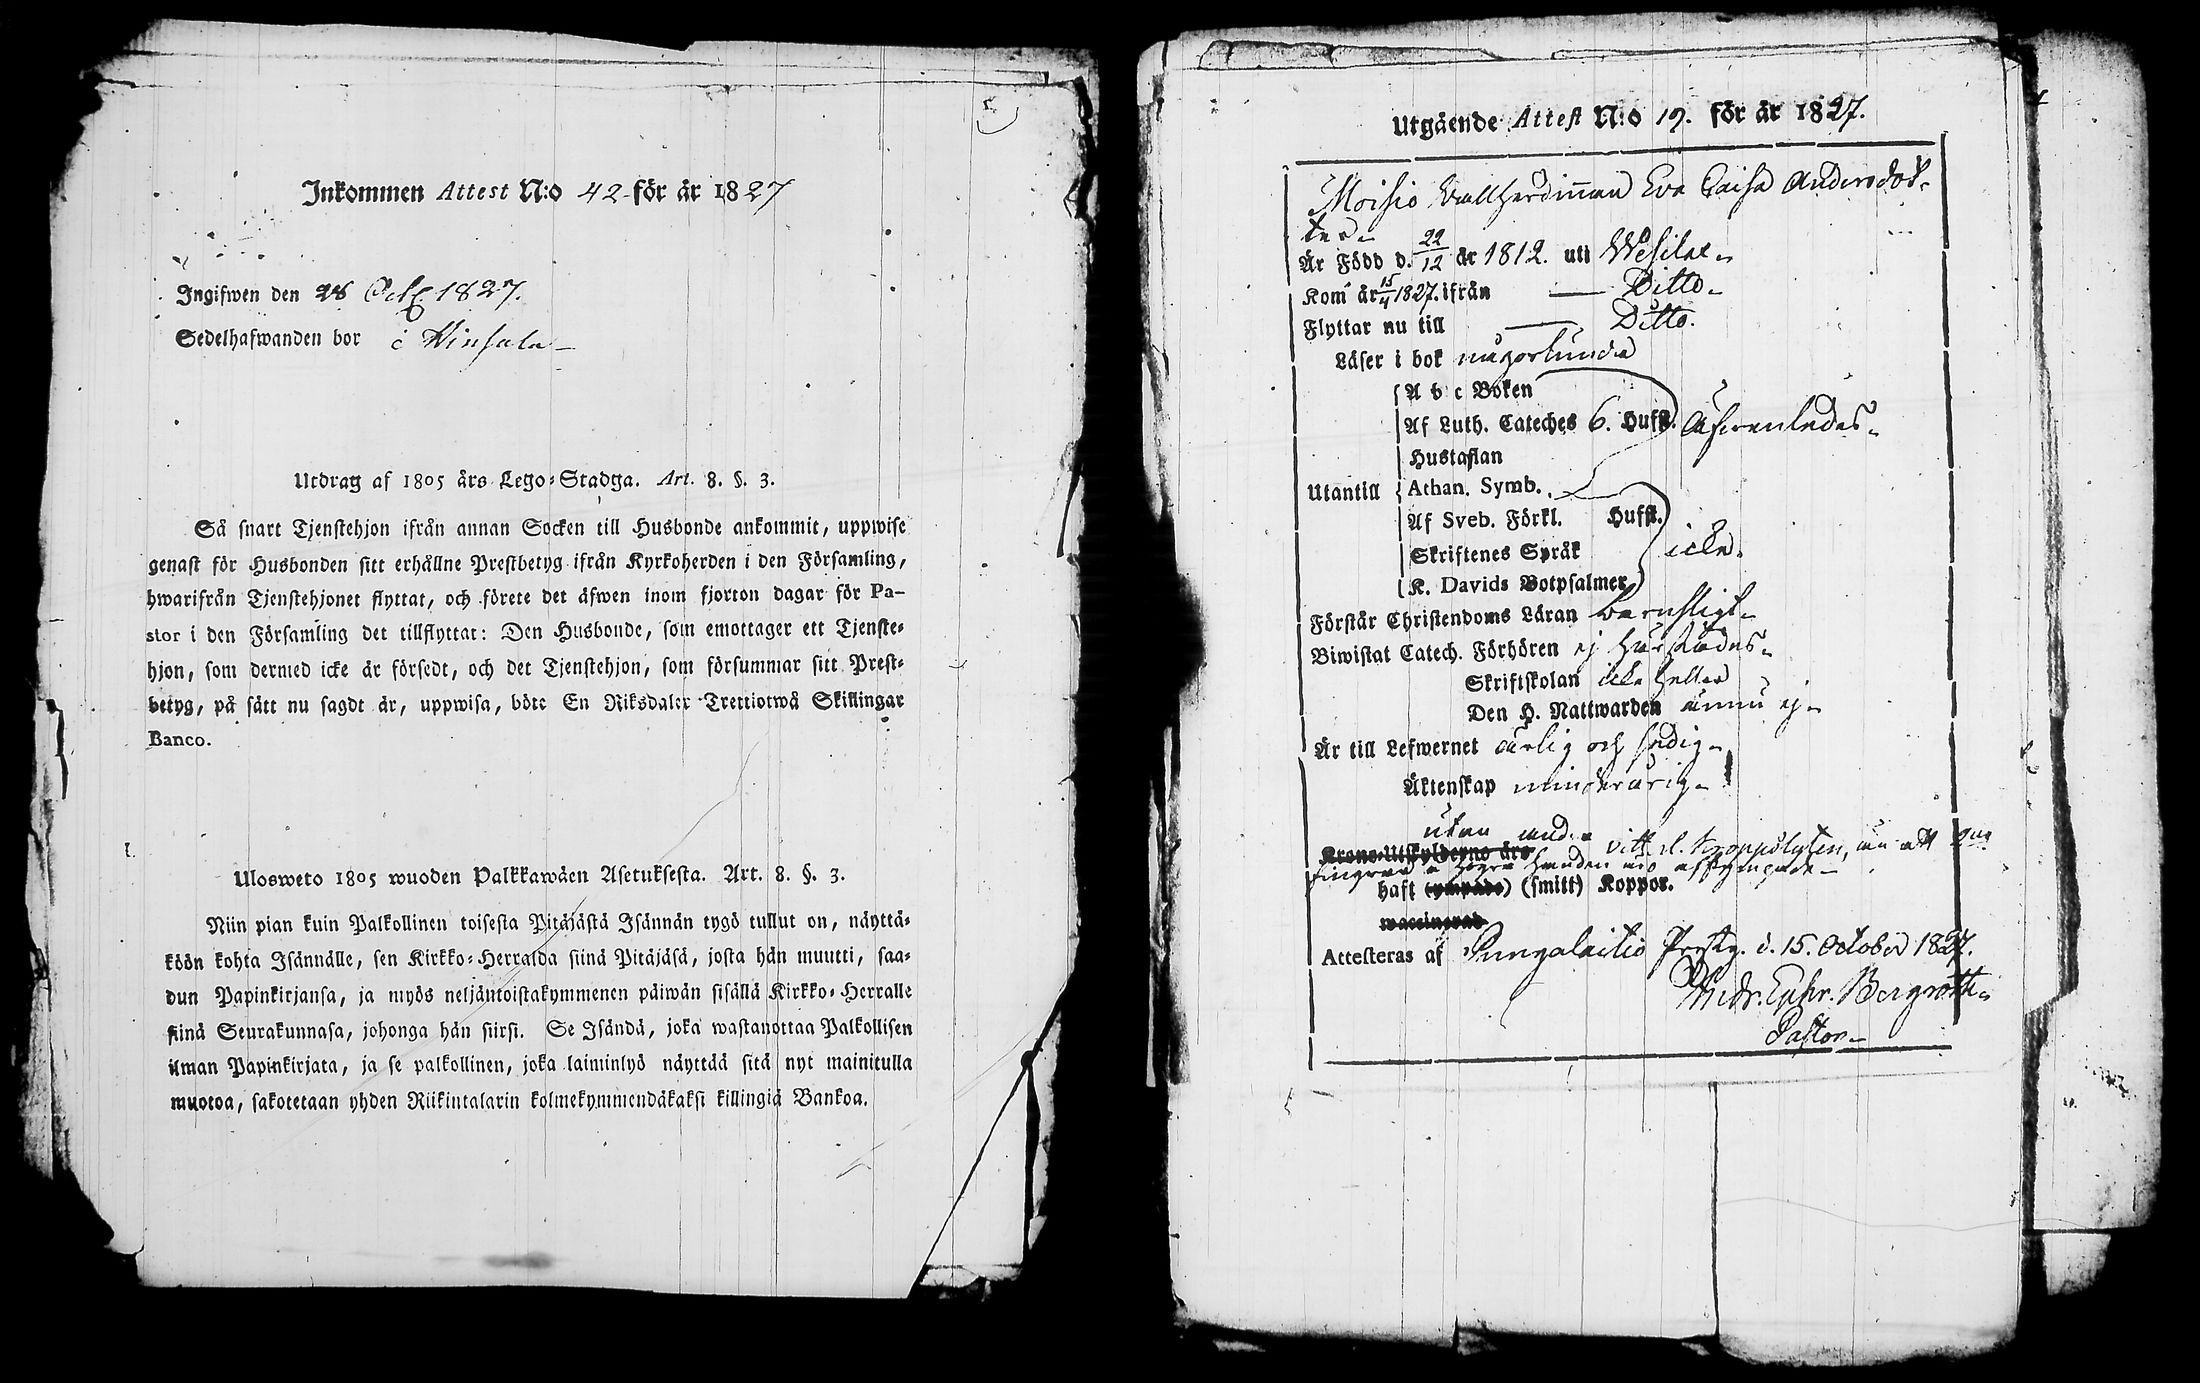 Inkommen Attest N:o 42 för år 1827
Ingifwen den 28 Oct 1827.
Sedelhafwanden bor i Winsala
Utdrag af 1805 års Lego-Stadga. Art. 8. §. 3.
Så snart Tjenstehjon ifrån annan Socken till Husbonde ankommit, uppwise
genast för Husbonden sitt erhållne Prestbetyg ifrån Kyrkoherden i den Församling,
hwarifrån Tjenstehjonet flyttat, och förete det äfwen inom fjorton dagar för Pa-
stor i den Församling det tillflyttat: Den Husbonde, som emottager ett Tjenste-
hjon, som dermed icke är försedt, och det Tjenstehjon, som försummar sitt Prest-
betyg, på sätt nu sagdt är, uppwisa, böte En Riksdaler Trettiotwå Skillingar
Banco.
Ulosweto 1805 wuoden Palkkawäen Asetuksesta. Art. 8. §. 3.
Niin pian kuin Palkollinen toisesta Pitäjästä Isännän tygö tullut on, näyttä-
köön kohta Isännälle, sen Kirkko-Herralda siinä Pitäjäsä, josta hän muutti, saa-
dun Papinkirjansa, ja myös neljäntoistakymmenen päiwän sisällä Kirkko-Herralle
siinä Seurakunnasa, johonga hän siirsi. Se Isändä, joka wastanottaa Palkollisen
ilman Papinkirjata, ja se palkollinen, joka laiminlyö näyttää sitä nyt mainitulla
muotoa, sakotetaan yhden Riikintalarin kolmekymmendäkaksi killingiä Bankoa.
Utgående Attest N:o 19. för år 1827.
Moisio Wallherdinnan Eva Caisa Andersdot-
ter
Är Född d. 22/12 år 1812. uti Wesilax
Kom år 15/4 1827. ifrån — Ditto
Flyttar nu till — Ditto.
Läser i bok någorlunda
A b c Boken
Af Luth. Cateches 6. Hufst. Äfwenledes
Hustaflan
Utantill Athan. Symb.
Af Sveb. Förkl. Hufst.
Skriftenes Språk icke.
K. Davids Botpsalmer
Förstår Christendoms Läran barnsligt
Biwistat Catech. Förhören ej härstädes
Skriftskolan icke heller
Den H. Nattwarden ännu ej
Är till Lefwernet ärlig och sedig
Äktenskap minderårig
utan
Krono-Utskylderne års
fingrar högra handen
haft (ympade) (smitt) Koppor.
waccinerad
Attesteras af Pungalaitio Prestg. d. 15. October 1827.
Bergroth
Pastor